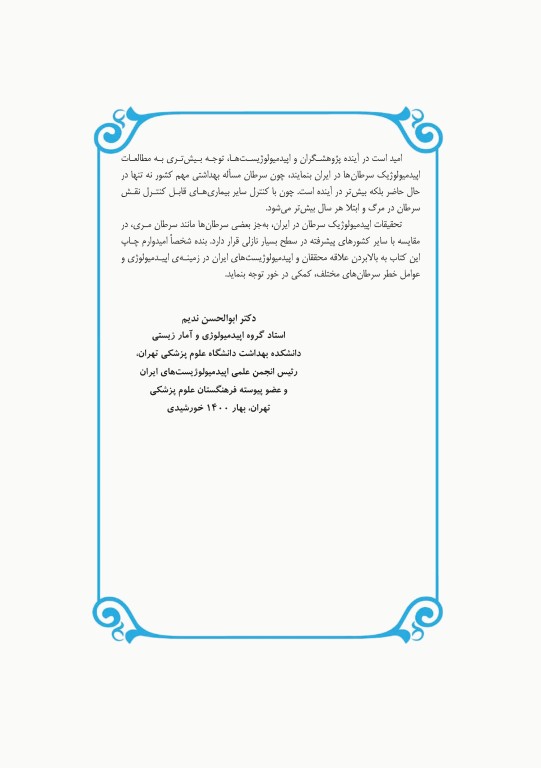 امید است در آینده پژوهشگران و اپیدمیولوژیست‌ها، توجه بیش‌تری به مطالعات
اپیدمیولوژیک سرطان‌ها در ایران بنمایند، چون سرطان مسأله بهداشتی مهم کشور نه تنها در
حال حاضر بلکه بیش‌تر در آینده است. چون با کنترل سایر بیماری‌های قابل کنترل نقش
سرطان در مرگ و ابتلا هر سال بیش‌تر می‌شود.
تحقیقات اپیدمیولوژیک سرطان در ایران، به‌جز بعضی سرطان‌ها مانند سرطان مری، در
مقایسه با سایر کشورهای پیشرفته در سطح بسیار نازلی قرار دارد. بنده شخصاً امیدوارم چاپ
این کتاب به بالابردن علاقه محققان و اپیدمیولوژیست‌های ایران در زمینه‌ی اپیدمیولوژی و
عوامل خطر سرطان‌های مختلف، کمکی در خور توجه بنماید.
دکتر ابوالحسن ندیم
استاد گروه اپیدمیولوژی و آمار زیستی
دانشکده بهداشت دانشگاه علوم پزشکی تهران،
رئیس انجمن علمی اپیدمیولوژیست‌های ایران
و عضو پیوسته فرهنگستان علوم پزشکی
تهران، بهار ۱۴۰۰ خورشیدی